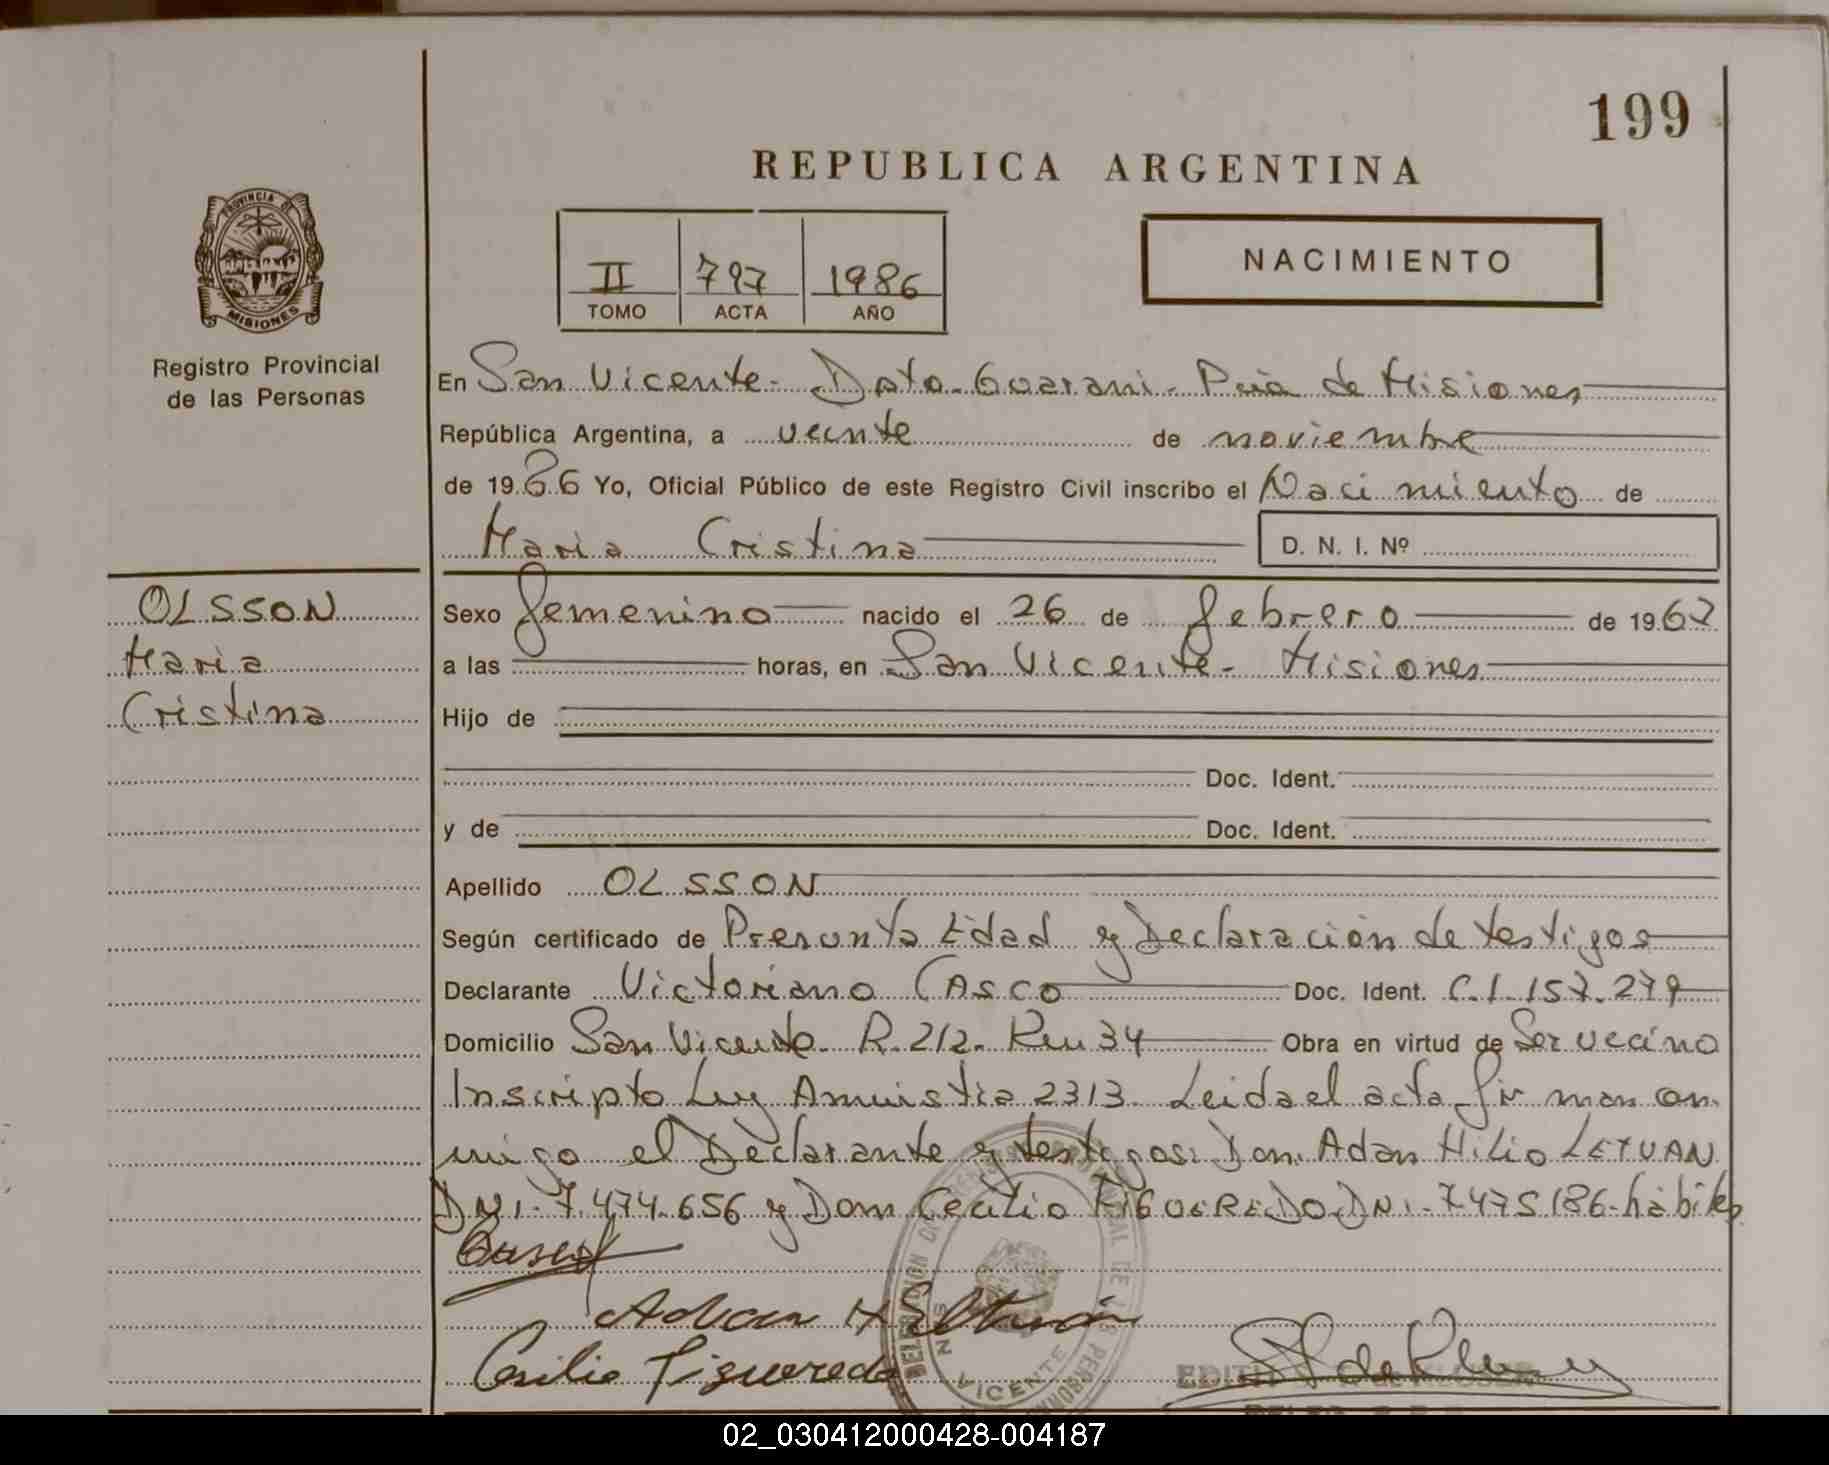 199
REPUBLICA ARGENTINA
PROVINCIA DE
MISIONES
Registro Provincial
de las Personas
II 797 1986
TOMO ACTA AÑO
NACIMIENTO
En San Vicente- Dpto. Guarani- Pcia de Misiones
República Argentina, a veinte de noviembre
de 1986 Yo, Oficial Público de este Registro Civil inscribo el Nacimiento de
Maria Cristina
D. N. I. Nº
OLSSON
Maria
Cristina
Sexo femenino nacido el 26 de febrero de 1967
a las horas, en San Vicente- Misiones
Hijo de
Doc. Ident.
y de Doc. Ident.
Apellido OLSSON
Según certificado de Presunta Edad y Declaración de testigos
Declarante Victoriano CASCO Doc. Ident. C.I. 157.279
Domicilio San Vicente- R.212- Km 34 Obra en virtud de Ser vecino
Inscripto Ley Amnistia 2313. Leida el acta firman con
migo el Declarante y testigos: Don Adan Hilio LETUAN
DNI- 7.474.656 y Don Cecilio FIGUEREDO DNI- 7475186- hábiles
Adan H
Cecilio Figueredo
DELEGACION
PROVINCIAL DE LAS PERSONAS
VICENTE
EDITH
02_030412000428-004187